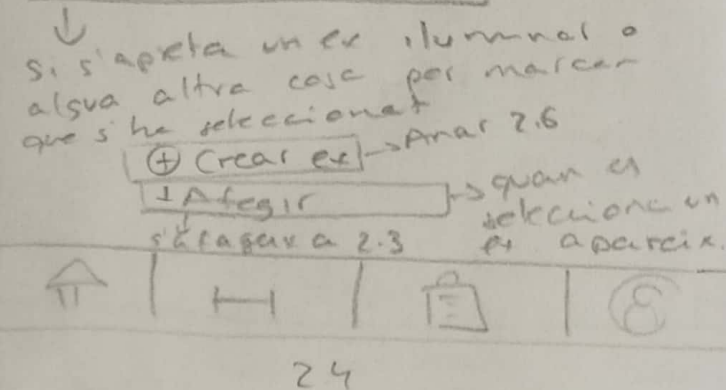 Si s'apreta un ex iluminar o
alguna altra cosa per marcar
que s'ha seleccionat
⊕ Crear ex → Anar 2.6
↓ Afegir → quan es
selecciona un
ex apareix.
a 2.3
24